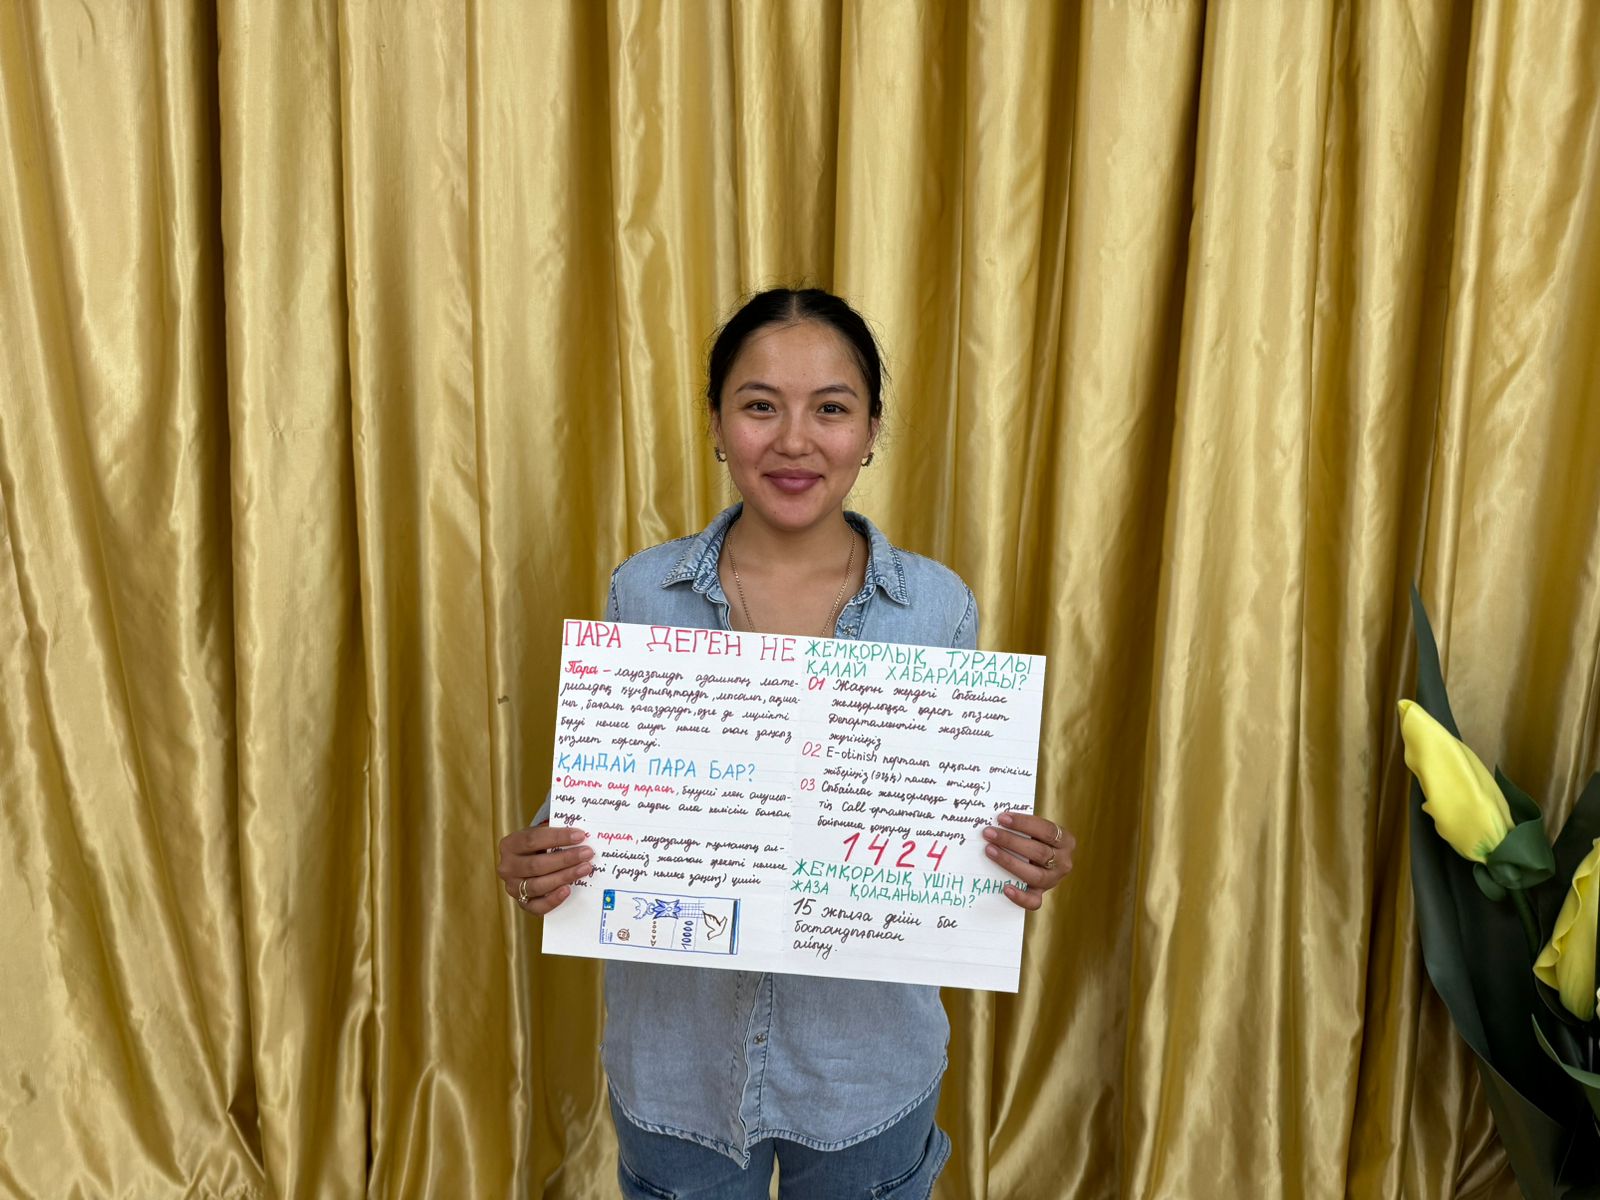 ПАРА ДЕГЕН НЕ
Пара – лауазымды адамның мате-
риалдық құндылықтарды, мысалы, ақша-
ны, бағалы қағаздарды, өзге де мүлікті
беруі немесе алуы немесе оған заңсыз
қызмет көрсетуі.
ҚАНДАЙ ПАРА БАР?
• Сатып алу парасы, беруші мен алушы-
ның арасында алдын ала келісім болған
кезде.
парасы, лауазымды тұлғаның ал-
келісімсіз жасаған әрекеті немесе
(заңды немесе заңсыз) үшін
10000
ЖЕМҚОРЛЫҚ ТУРАЛЫ
ҚАЛАЙ ХАБАРЛАЙДЫ?
01 Жақын жердегі Сыбайлас
жемқорлыққа қарсы қызмет
Департаментіне жазбаша
жүгініңіз
02 E-otinish порталы арқылы өтініш
жіберіңіз (ЭЦҚ) талап етіледі)
03 Сыбайлас жемқорлыққа қарсы қызмет-
тің Call-орталығына төмендегі
бойынша қоңырау шалыңыз
1424
ЖЕМҚОРЛЫҚ ҮШІН ҚАНДАЙ
ЖАЗА ҚОЛДАНЫЛАДЫ?
15 жылға дейін бас
бостандығынан
айыру.